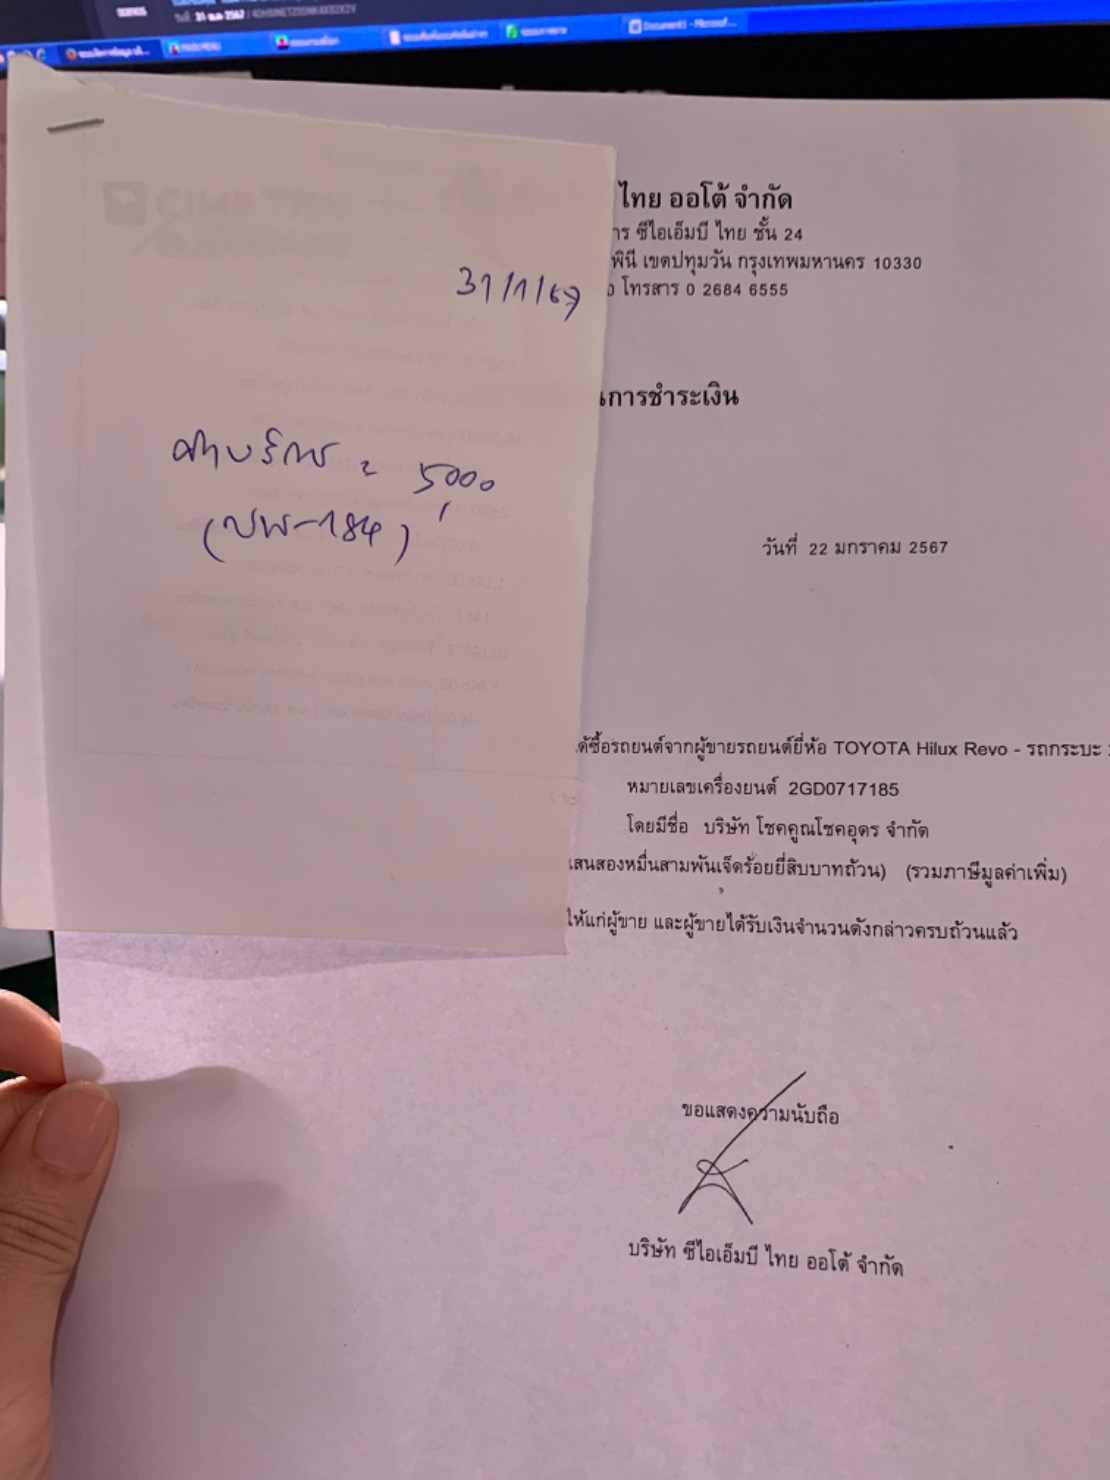 Document1 - Microsof...
31/1/67
ค่าบริการ = 5,000
(บพ-184)
ไทย ออโต้ จำกัด
าร ซีไอเอ็มบี ไทย ชั้น 24
พินี เขตปทุมวัน กรุงเทพมหานคร 10330
0 โทรสาร 0 2684 6555
นการชำระเงิน
วันที่ 22 มกราคม 2567
ได้ซื้อรถยนต์จากผู้ขายรถยนต์ยี่ห้อ TOYOTA Hilux Revo - รถกระบะ
หมายเลขเครื่องยนต์ 2GD0717185
โดยมีชื่อ บริษัท โชคคูณโชคอุดร จำกัด
แสนสองหมื่นสามพันเจ็ดร้อยยี่สิบบาทถ้วน) (รวมภาษีมูลค่าเพิ่ม)
ให้แก่ผู้ขาย และผู้ขายได้รับเงินจำนวนดังกล่าวครบถ้วนแล้ว
ขอแสดงความนับถือ
บริษัท ซีไอเอ็มบี ไทย ออโต้ จำกัด